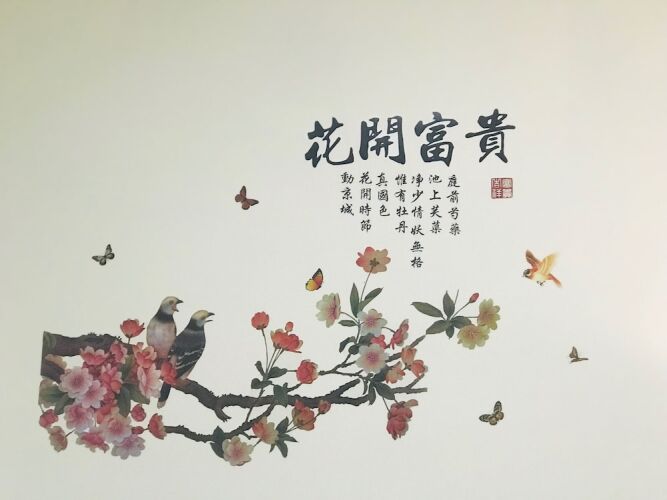 花開富貴
庭前芍藥
池上芙蕖
净少情妖無格
惟有牡丹
真國色
花開時節
動京城